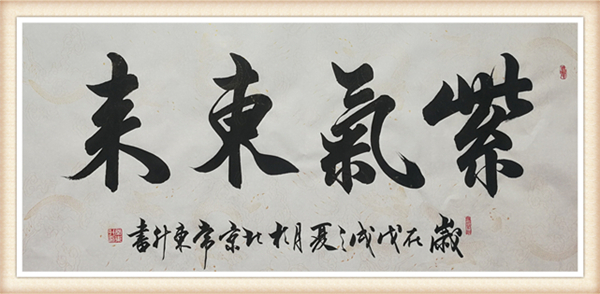 紫氣東来
歲在戊戌之夏月於北京常東升書